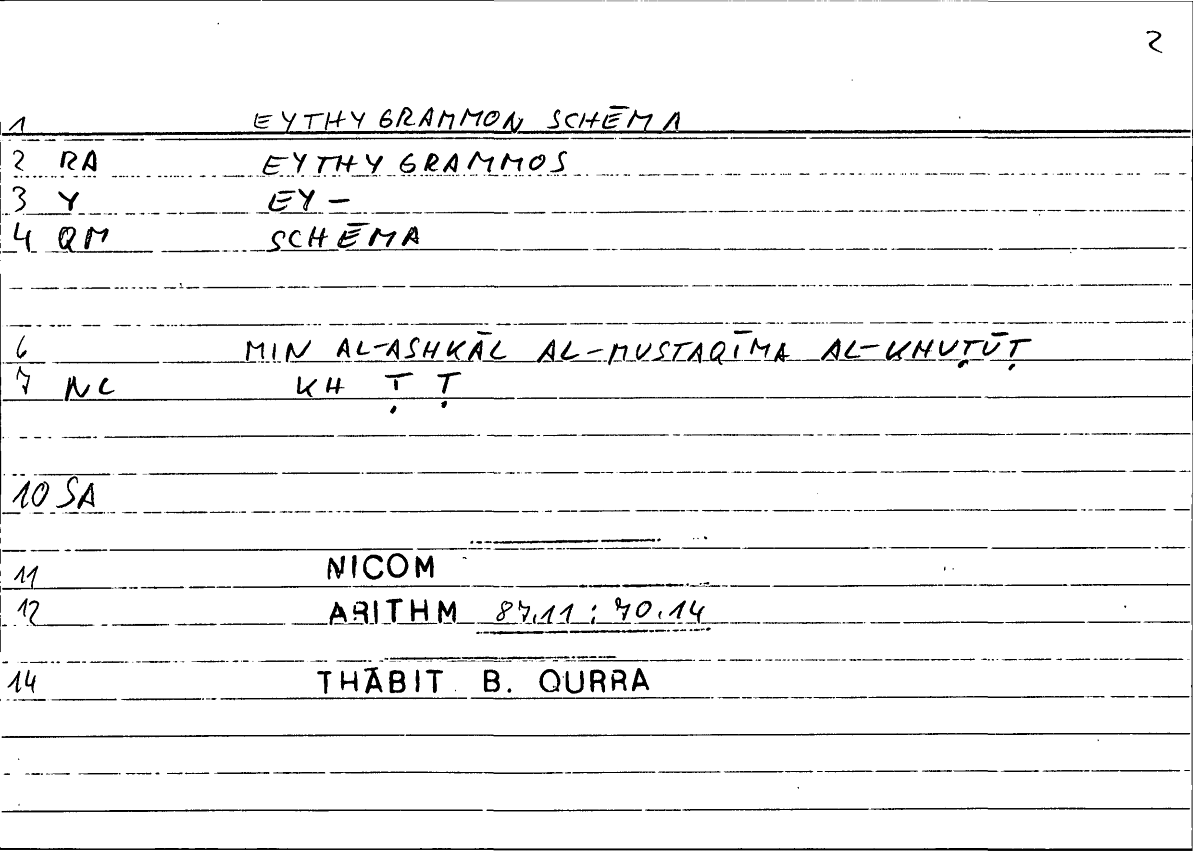 2
1 EYTHYGRAMMON SCHĒMA
2 RA EYTHYGRAMMOS
3 Y EY –
4 QM SCHĒMA
6 MIN AL-ASHKĀL AL-MUSTAQĪMA AL-KHUṬŪṬ
7 NC KH Ṭ Ṭ
10 SA
11 NICOM
12 ARITHM 87.11 : 70.14
14 THĀBIT B. QURRA